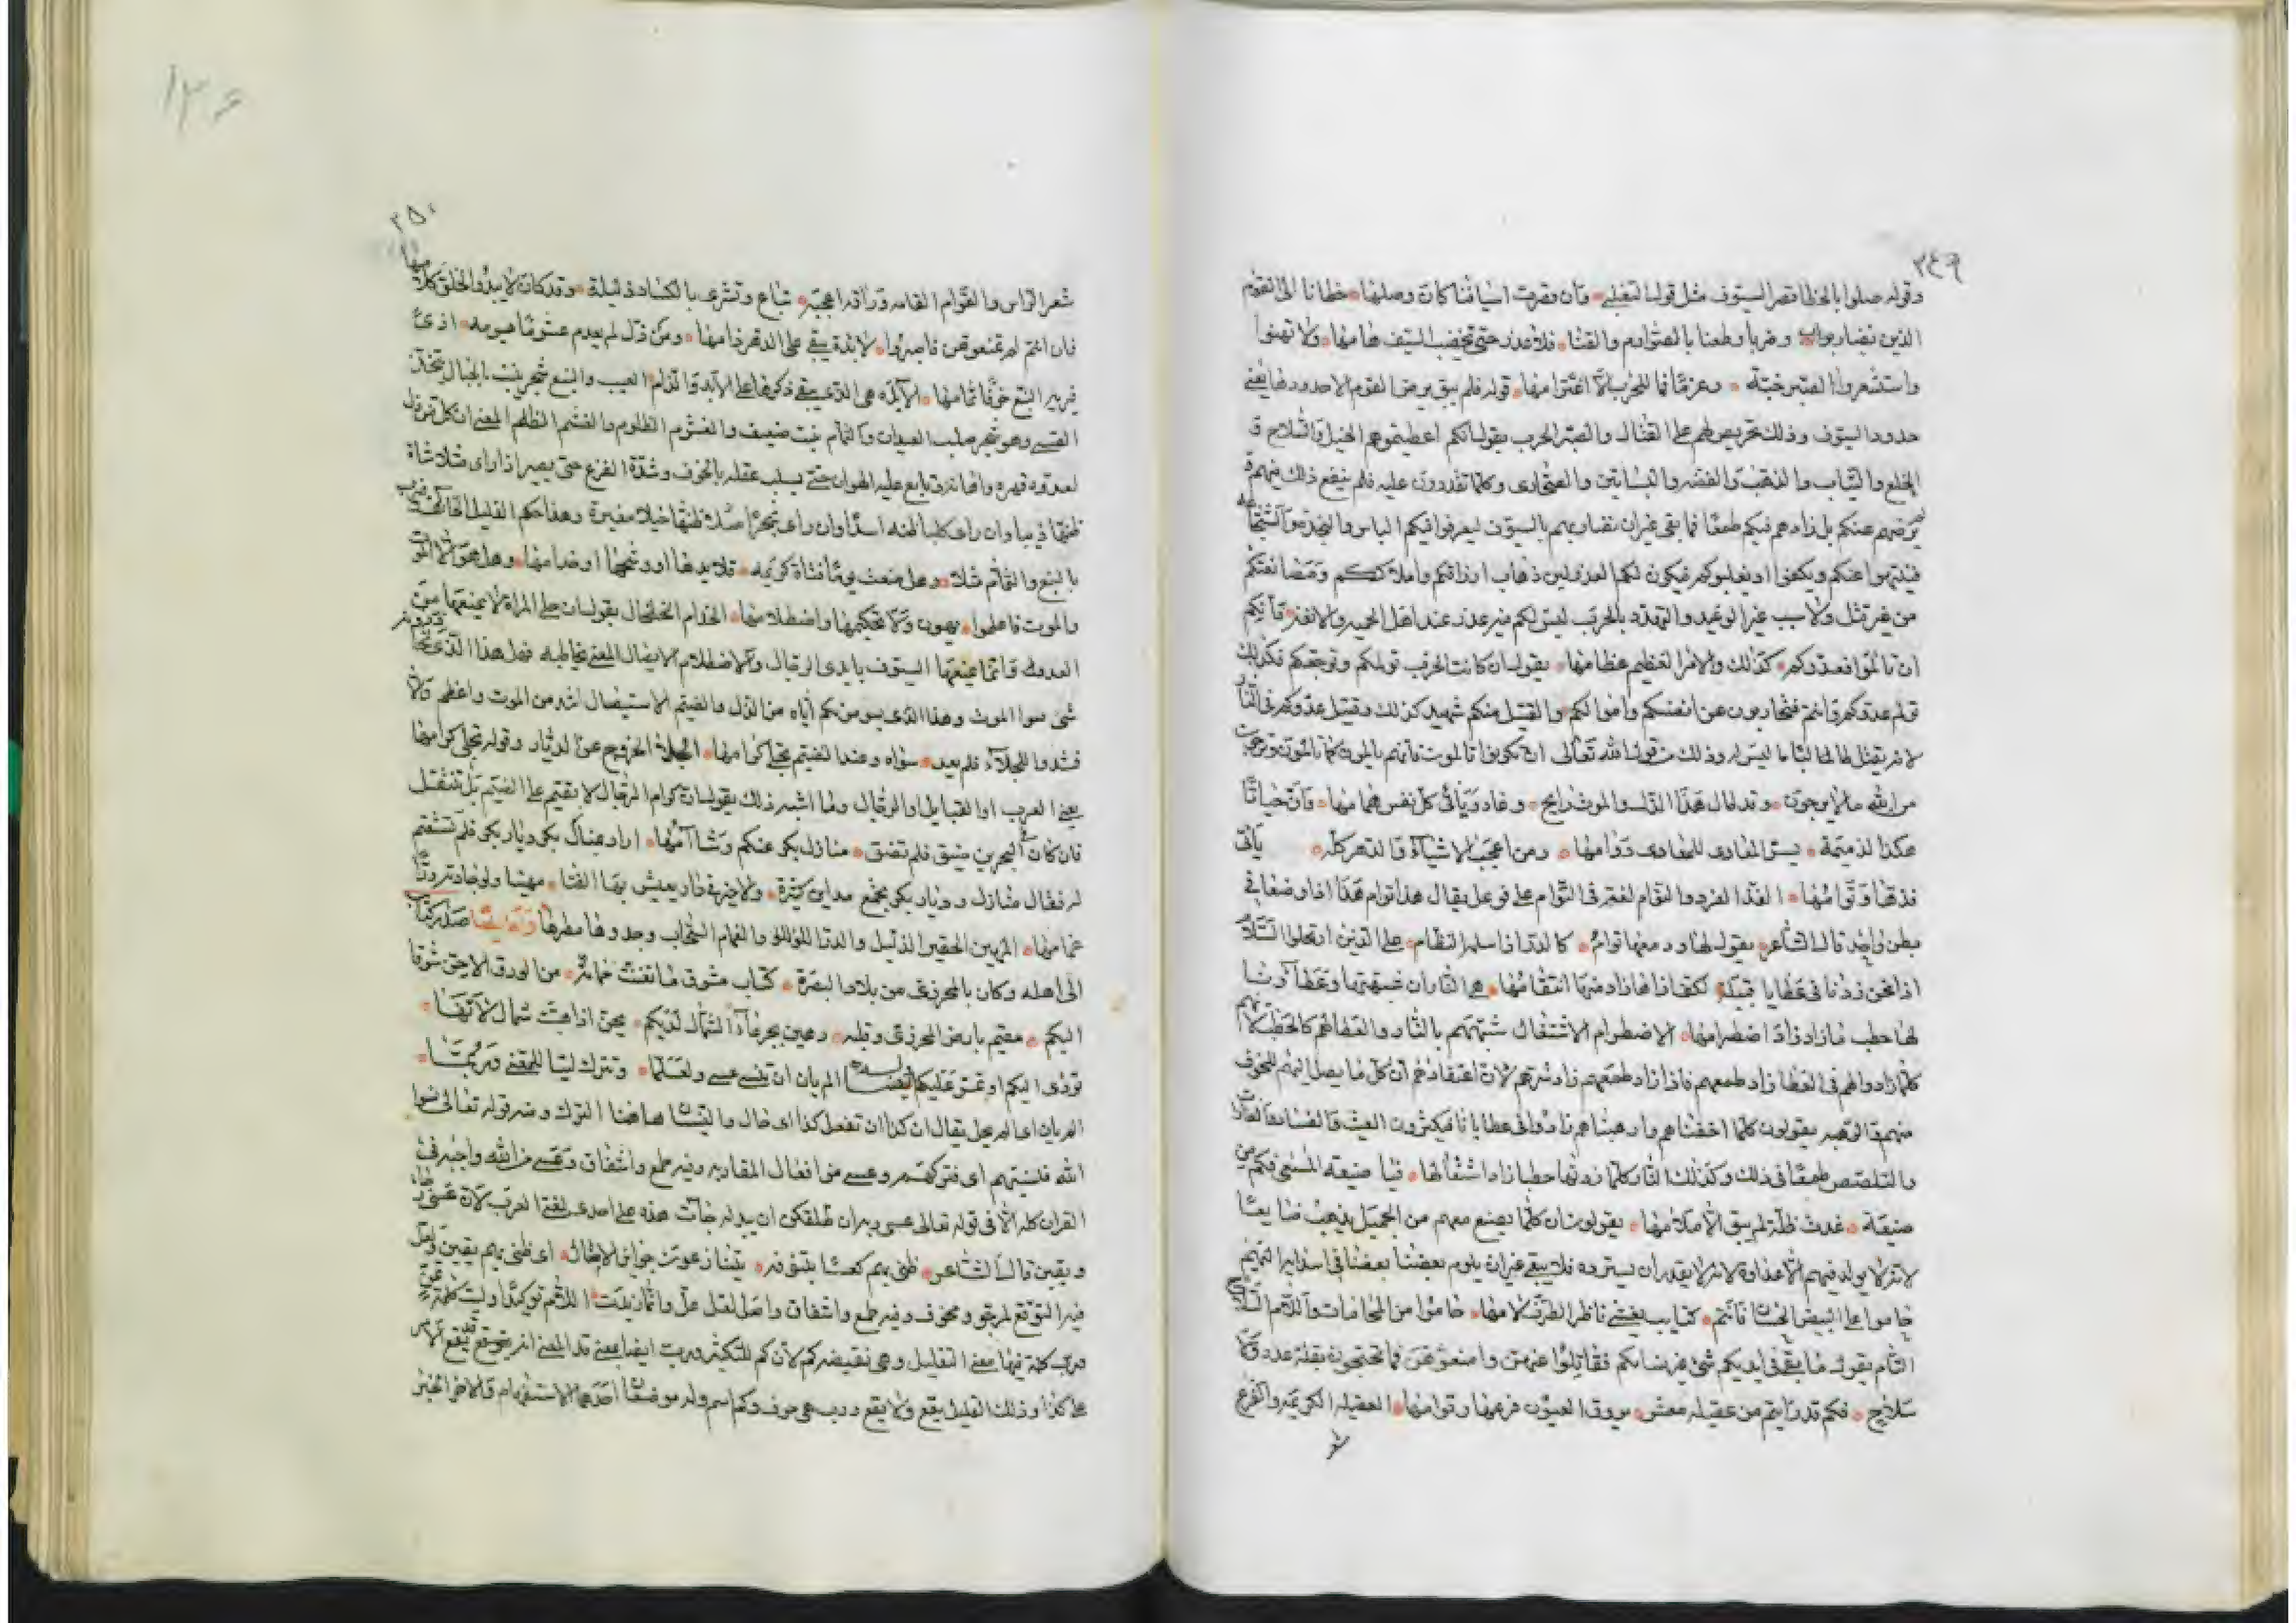 ٣٤٩
وقوله صلوا بالخطا قصر السيوف مثل قول التغلبي وان قصرت اسيافنا كان وصلها خطانا الى القوم
الذين نضارب وضربا وطعنا بالصوارم والقنا فلا عذر حتى تخضب السيف هامها ولا تهنوا
واستشعروا الصبر خبته وعزمًا فما للحرب الا اعتزامها قوله فلم يبق يرضى القوم الا حدودها يعني
حدود السيوف وذلك تحريض لهم على القتال والصبر الحرب يقول انكم اعطيتموهم الخيل والسلاح و
الخلع والثياب والذهب والفضه والبساتين والصحارى وكلما تقدرون عليه فلم ينفع ذلك فيهم و
يرضهم عنكم بل زادهم فيكم طمعًا فما بقى غير ان تضاربهم بالسيوف ليعرفوا فيكم الباس والنجدة والشجاعه
فينتهوا عنكم ويكفوا او يغلبوكم فيكون لكم العذر لمن ذهاب ارزاقكم واملاككم ومضانعتكم
من غير قتل ولا سبب غير الوعيد والتهدد بالحرب ليس لكم فيه عذر عند اهل الحميه ولا لانفه وانكم
ان تالموا فعدوكم كذلك والامر العظيم عظامها يقول ان كانت الحرب تولمكم وتوجعكم فكذلك
تولم عدوكم وانتم فتحاربون عن انفسكم واموالكم والقتيل منكم شهيد كذلك وقتيل عدوكم فى النار
لانه يقتل ظالما لباما ليس له وذلك من قول الله تعالى ان تكونوا تالموت فانهم يالموت كما تالموت وترجون
من الله ما لا يرجون وقد طال هذا الذل والموت رايح وغاد وياتى كل نفس همامها وان حياتا
هكذا لذميمة يسر المفاوى للمفادى دوامها ومن اعجب الاشياء والدهر كله ياتى
فذها وتوامها الفذ الفرد والتوام لغته فى التوام على فوعل يقال هذا توام هذا اذا وضعا فى
بطن واحد قال الشاعر يقول لها ودمعها توام كالدر اذا سلمه النظام على الذين ارتحلوا السلام
اذا نحن زدنا فى عطايا قبيلة لكف اذاها زاد منها انتقامها هى النار ان شبهتها وعطاؤنا
لها حطب ما زاد زاد اضطرامها الاضطرام الاشتعال شبههم بالنار والعطا لهم كالحطب لانهم
كلما زادوا لهم فى العطا زاد طمعهم فاذا زاد طمعهم زاد شرهم لان اعتقادهم ان كل ما يصل اليهم للخوف
منهم والرهبه يقولون كلما اخفناهم وارهبناهم زادوا فى عطايانا فيكثرون العيث والفساد والغارات
والتلصص طمعًا فى ذلك وكذلك النار كلما زدتها حطبا زاد اشتعالها فيا ضيعه المسعى فكم من
صنيعة غدت ظلة لم يبق الا ملامها يقول وان كلما يصنع معهم من الجميل يذهب ضايعًا
لانه لا يولد فيهم الا عداوة لانه لا يقدر ان يسترده فلا يبقى غير ان يلوم بعضنا بعضنا فى اسدايه اليهم
حاموا على البيض الحسان فانتم كتايب يعشى ناظر الطرف لامها حاموا من المحامات واللام السلاح
التام يقول ما بقى فى ايديكم شئ غير نسايكم فقاتلوا عنهن وامنعوهن فما تحتجون بقلة عدد ولا
سلاح فكم قد رايتم من عقيله معشر يروق العيون فرعها وقوامها العقيله الكريمه والفرع
شعر
٣٥٠
شعر الراس والقوام القامه وراقه اعجبه تباع وتشرى بالكساد ذليلة وقد كان لا يبدوا لخلق كلامها
فان انتم لم تمنعوهن فاصبروا لابدة يبقى على الدهر ذامها ومن ذل لم يعدم غشومًا يسومه اذى
فيريه النبع خوفًا ثمامها الابدة هى التى يبقى ذكرها على الابد والذام العيب والنبع شجر ينبت بالجبال يتخذ منه
القسى وهو شجر صليب العيدان والثمام نبت ضعيف والغشوم الظلوم والغشم الظلم المعنى ان كل من ذل
لعدوه قهره واهانه وتابع عليه الهوان حتى يسلب عقله بالخوف وشدة الفزع حتى يصير اذا راى مثلا شاة
ظنها ذيبا وان راى كلبا ظنه اسدا وان راى شجرا مثلا ظنها خيلا مغيرة وهذا حكم القليل الخايف
بالنبع والثمام مثلا وهل منعت يومًا فتاة كريمه قلايدها او وشحها او خدامها وهل هو الا الموت
والموت فاعلموا يهون ولا تحكيمها واصطلامها الخدام الخلخال يقول ان حلى المراة لا يمنعها من
العدو وانما يمنعها السيوف بايدى الرجال والاصطلام الايصال المعنى يخاطبه فهل هذا الذى تخافونه
شئ سوا الموت وهذا الذى يسومنكم اياه من الذل والضيم والاستيصال اشد من الموت واعظم والا
فشدوا للجلاء فلم يعد سواه وعند الضيم تجلى كرامها الجلا الخروج عن الديار وقوله تجلى كرامها
يعنى العرب او القبايل والرجال وما اشبه ذلك يقول ان كرام الرجال لا يقيم على الضيم بل تنتقل
فان كان البحرين ضيق فلم تضق منازل بكر عنكم وشاآمها اراد هناك بكر وديار بكر فلم تستقم
له فقال منازل وديار بكر يجمع مداين كثيرة ولا خير فى دار يعيش بها الفتا مهينا ولو جادت بدر
غمامها المهين الحقير الذليل والدر اللولو والغمام السحاب وجودها مطرها وقال ايضًا صدر كتاب
الى اهله وكان بالمحرزى من بلاد البصرة كتاب مشوق ما تغنت حمائم من الورق الا حن شوقا
اليكم مقيم بارض المحرزى وقلبه رهين بجرعاء الشمال لديكم يحن اذا هبت شمال لانها
تودى اليكم او تمر عليكم ايضا الم يان ان تنسى عسى ولعلما وتترك ليتا للمعنى وربما
الم يان اى الم يحل يقال ان كذا ان تفعل كذا اى حان والنسيا هاهنا الترك ومنه قوله تعالى نسوا
الله فنسيهم اى فتركهم وعسى من افعال المقاربه وفيه طمع واشفاق وعسى من الله واجبه فى
القران كله الا فى قوله تعالى عسى ربه ان طلقكن ان يبدله جاءت هذه على احدى لغتى العرب لان عسى رجاء
ويقين قال الشاعر ظنى بهم كعسى بتنوفه يتنازعون جوايز الامثال اى ظنى بهم يقين ولعل
فيه التوقع لمرجو ومخوف وفيه طمع واشفاق واصل لعل عل وانما زيدت اللام توكيدًا وليت كلمة تمن
ورب كلمة فيها معنى التقليل وهى نقيضه كم لان كم للتكثير وربت ايضا بمعنى قد المعنى انه يتوقع يقع الامر
على كذا وذلك القليل يقع ولا يقع ورب هى حرف وكم اسم وله موضعان احدهما الاستفهام والاخر الخبر